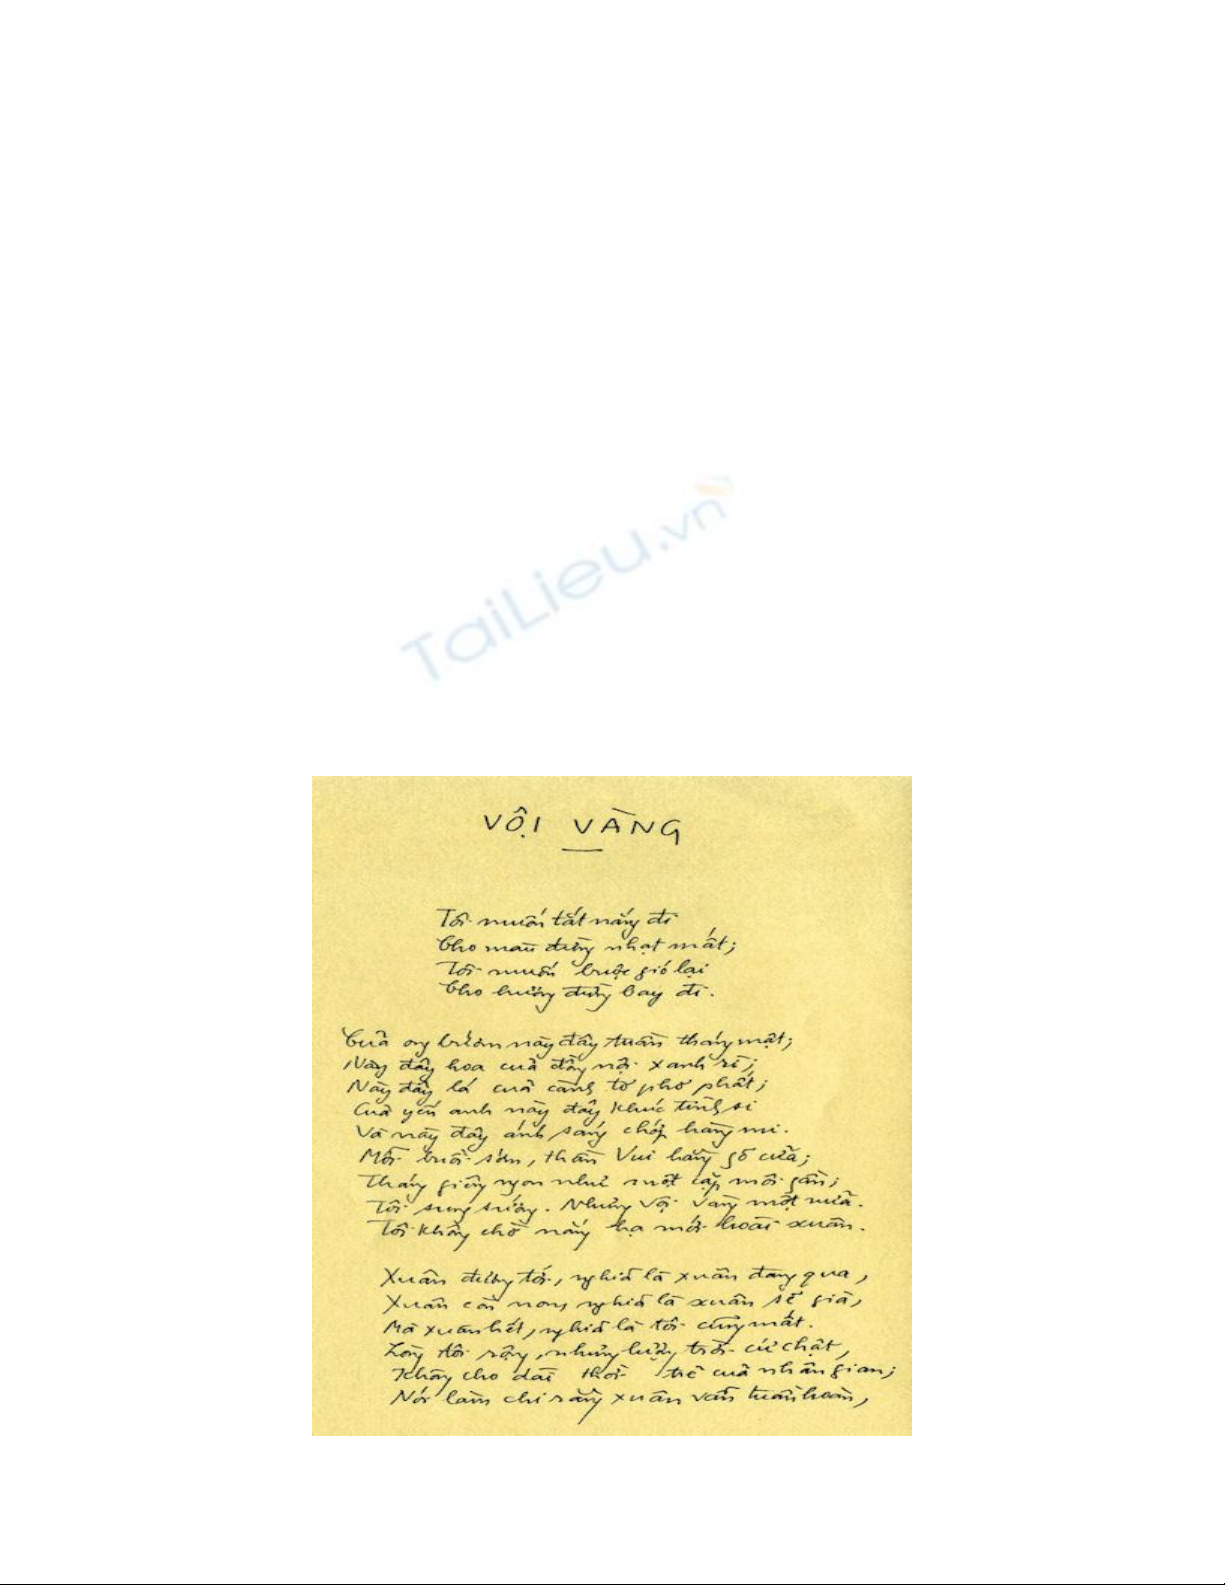 TaiLieu.vn
VỘI VÀNG
Tôi muốn tắt nắng đi
Cho màu đừng nhạt mất;
Tôi muốn buộc gió lại
Cho hương đừng bay đi.
Của ong bướm này đây tuần tháng mật;
Này đây hoa của đồng nội xanh rì;
Này đây lá của cành tơ phơ phất;
Của yến anh này đây khúc tình si
Và này đây ánh sáng chớp hàng mi.
Mỗi buổi sớm, thần Vui hằng gõ cửa;
Tháng giêng ngon như một cặp môi gần;
Tôi sung sướng. Nhưng vội vàng một nửa.
Tôi không chờ nắng hạ mới hoài xuân.
Xuân đương tới, nghĩa là xuân đang qua,
Xuân còn non, nghĩa là xuân sẽ già,
Mà xuân hết, nghĩa là tôi cũng mất.
Lòng tôi rộng, nhưng lượng trời cứ chật,
Không cho dài thời trẻ của nhân gian;
Nói làm chi rằng xuân vẫn tuần hoàn,